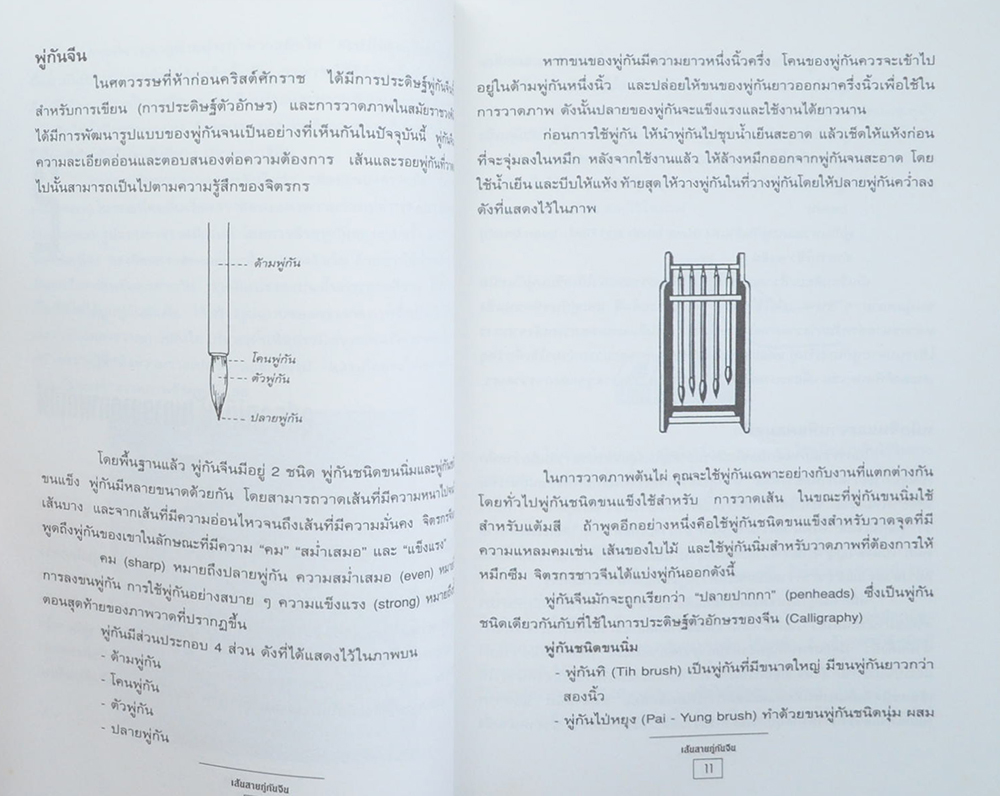 พู่กันจีน
ในศตวรรษที่ห้าก่อนคริสต์ศักราช ได้มีการประดิษฐ์พู่กันจีน
สำหรับการเขียน (การประดิษฐ์ตัวอักษร) และการวาดภาพในสมัยราชวงศ์
ได้มีการพัฒนารูปแบบของพู่กันจนเป็นอย่างที่เห็นกันในปัจจุบันนี้ พู่กัน
ความละเอียดอ่อนและตอบสนองต่อความต้องการ เส้นและรอยพู่กันที่วาด
ไปนั้นสามารถเป็นไปตามความรู้สึกของจิตรกร
ด้ามพู่กัน
โคนพู่กัน
ตัวพู่กัน
ปลายพู่กัน
โดยพื้นฐานแล้ว พู่กันจีนมีอยู่ 2 ชนิด พู่กันชนิดขนนิ่มและพู่กัน
ขนแข็ง พู่กันมีหลายขนาดด้วยกัน โดยสามารถวาดเส้นที่มีความหนาไป
เส้นบาง และจากเส้นที่มีความอ่อนไหวจนถึงเส้นที่มีความมั่นคง จิตรกร
พูดถึงพู่กันของเขาในลักษณะที่มีความ “คม” “สม่ำเสมอ” และ “แข็งแรง”
คม (sharp) หมายถึงปลายพู่กัน ความสม่ำเสมอ (even)
การลงขนพู่กัน การใช้พู่กันอย่างสบาย ๆ ความแข็งแรง (strong) หมายถึง
ตอนสุดท้ายของภาพวาดที่ปรากฏขึ้น
พู่กันมีส่วนประกอบ 4 ส่วน ดังที่ได้แสดงไว้ในภาพบน
- ด้ามพู่กัน
- โคนพู่กัน
- ตัวพู่กัน
- ปลายพู่กัน
เส้นสายภู่กันจีน
หากขนของพู่กันมีความยาวหนึ่งนิ้วครึ่ง โคนของพู่กันควรจะเข้าไป
อยู่ในด้ามพู่กันหนึ่งนิ้ว และปล่อยให้ขนของพู่กันยาวออกมาครึ่งนิ้วเพื่อใช้ใน
การวาดภาพ ดังนั้นปลายของพู่กันจะแข็งแรงและใช้งานได้ยาวนาน
ก่อนการใช้พู่กัน ให้นำพู่กันไปชุบน้ำเย็นสะอาด แล้วเช็ดให้แห้งก่อน
ที่จะจุ่มลงในหมึก หลังจากใช้งานแล้ว ให้ล้างหมึกออกจากพู่กันจนสะอาด โดย
ใช้น้ำเย็น และบีบให้แห้ง ท้ายสุด ให้วางพู่กันในที่วางพู่กันโดยให้ปลายพู่กันคว่ำลง
ดังที่แสดงไว้ในภาพ
ในการวาดภาพต้นไผ่ คุณจะใช้พู่กันเฉพาะอย่างกับงานที่แตกต่างกัน
โดยทั่วไปพู่กันชนิดขนแข็งใช้สำหรับ การวาดเส้น ในขณะที่พู่กันขนนิ่มใช้
สำหรับแต้มสี ถ้าพูดอีกอย่างหนึ่งคือใช้พู่กันชนิดขนแข็งสำหรับวาดจุดที่มี
ความแหลมคมเช่น เส้นของใบไม้ และใช้พู่กันนิ่มสำหรับวาดภาพที่ต้องการให้
หมึกซึม จิตรกรชาวจีนได้แบ่งพู่กันออกดังนี้
พู่กันจีนมักจะถูกเรียกว่า “ปลายปากกา” (penheads) ซึ่งเป็นพู่กัน
ชนิดเดียวกันกับที่ใช้ในการประดิษฐ์ตัวอักษรของจีน (Calligraphy)
พู่กันชนิดขนนิ่ม
- พู่กันทิ (Tih brush) เป็นพู่กันที่มีขนาดใหญ่ มีขนพู่กันยาวกว่า
สองนิ้ว
- พู่กันไป่หยุง (Pai - Yung brush) ทำด้วยขนพู่กันชนิดนุ่ม ผสม
เส้นสายภู่กันจีน
11